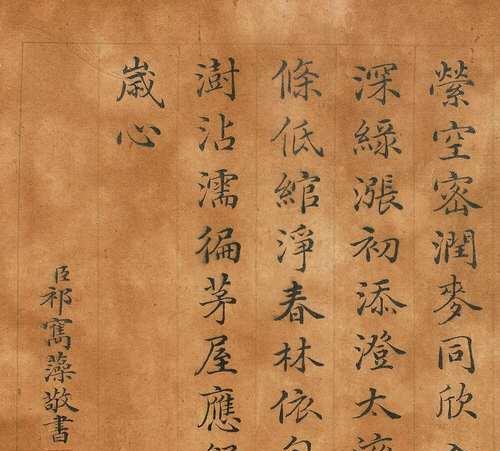 縈空密潤麥同欣
深綠漲初添澄太
條低綰淨春林依
澍沾濡徧茅屋應
歲心
臣祁寯藻敬書